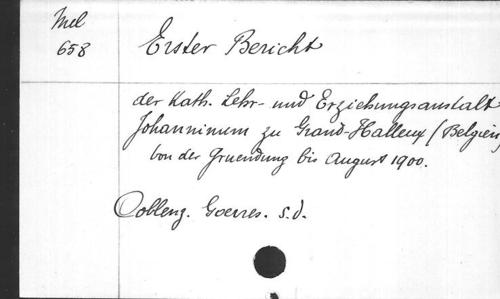 Mel
658
Erster Bericht
der Kath. Lehr- und Erziehungsanstalt
Johanninum zu Grand-Halleux (Belgien)
von der Gruendung bis August 1900.
Coblenz. Goerres. s.d.